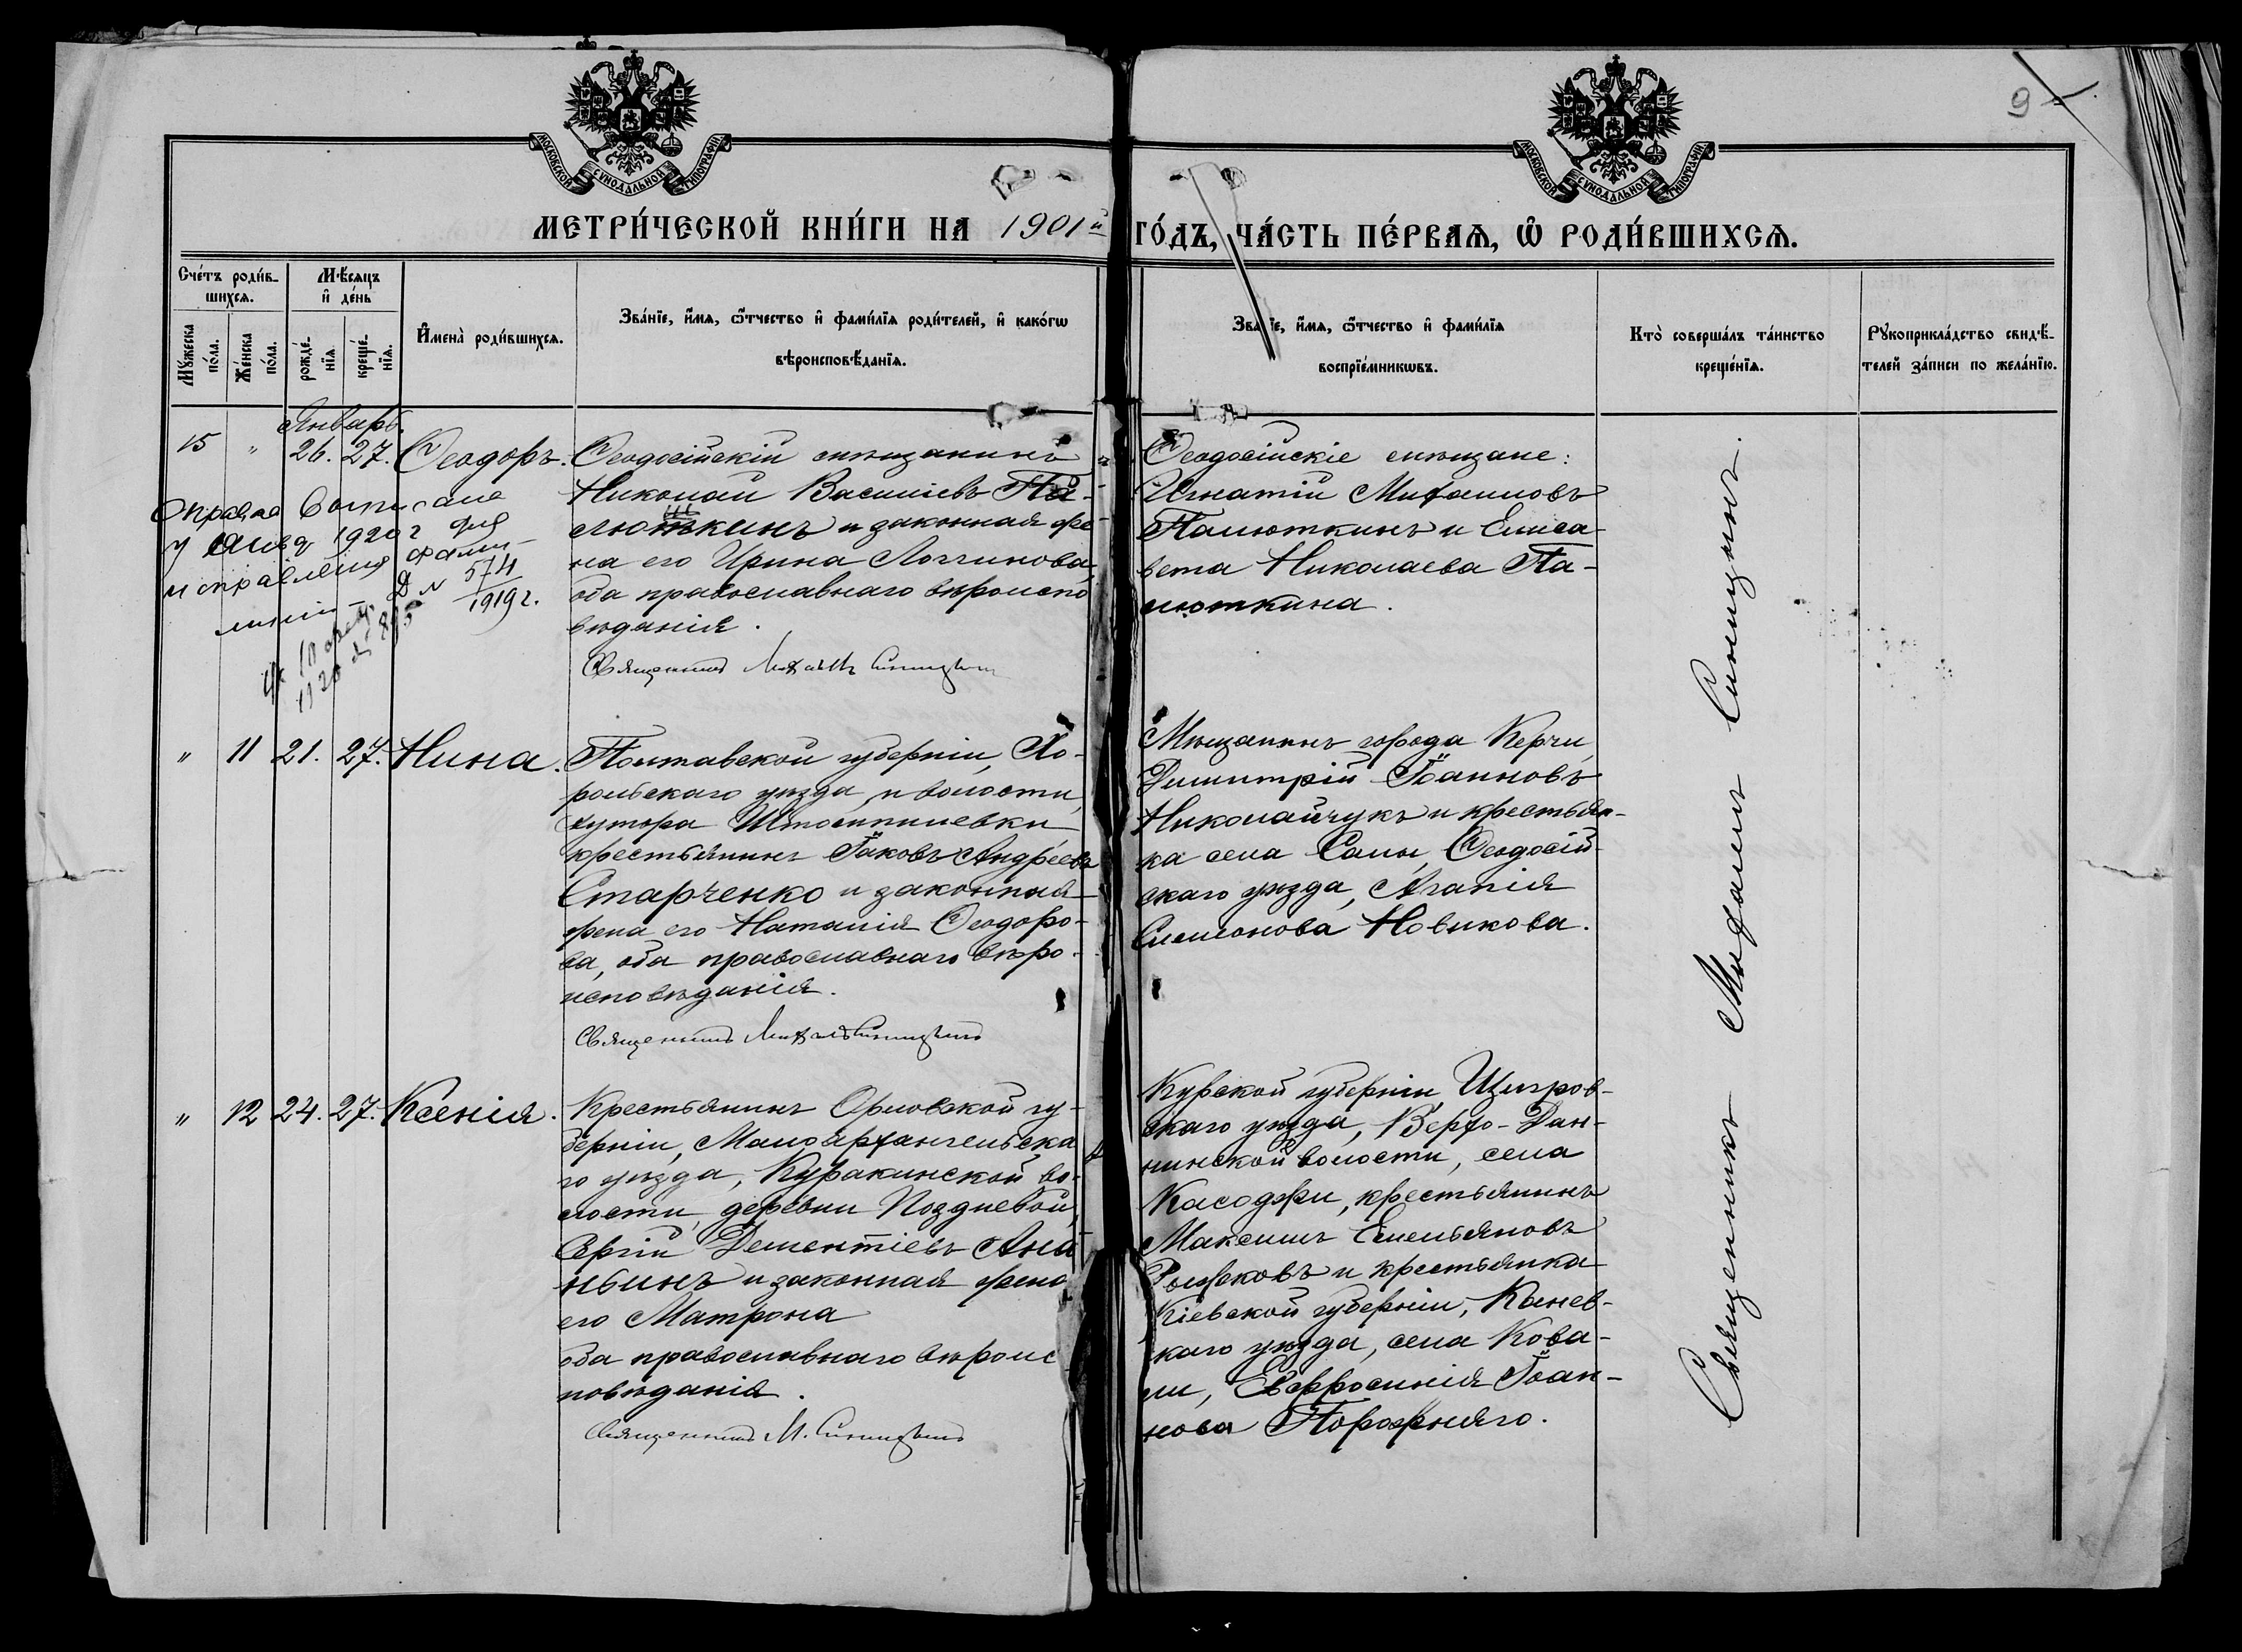 9
МОСКОВСКОЙ СѴНОДАЛЬНОЙ ТИПОГРАФІИ
МОСКОВСКОЙ СѴНОДАЛЬНОЙ ТИПОГРАФІИ
МЕТРИ́ЧЕСКОЙ КНИ́ГИ НА 1901й ГО́ДЪ, ЧА́СТЬ ПЕ́РВАѦ, Ѡ҆ РОДИ́ВШИХСѦ.
Сче́тъ роди́в-
шихсѧ.
Мꙋ́жеска
по́ла.
Же́нска
по́ла.
Мѣ́сѧцъ
и҆ де́нь
рожде́-
нїѧ.
креще́-
нїѧ.
И҆мена̀ роди́вшихсѧ.
Зва́нїе, и҆́мѧ, ѻ҆́тчество и҆ фами́лїѧ роди́телей, и҆ како́гѡ
вѣроисповѣ́данїѧ.
Зва́нїе, и҆́мѧ, ѻ҆́тчество и҆ фами́лїѧ
воспрїе́мникѡвъ.
Кто̀ соверша́лъ та́инство
креще́нїѧ.
Рꙋкоприкла́дство свидѣ́-
телей за́писи по жела́нїю.
Январь.
15 " 26. 27. Ѳеодоръ.
Ѳеодосійскій мѣщанинъ
Николай Василіевъ Па-
люткинъ и законная же-
на его Ирина Логгинова,
оба православнаго вѣроиспо
вѣданія.
Священникъ Михаилъ Синицынъ
Справка выписана
7 Янва 1920 г для
исправленія фами-
ліи – Д № 574
1919 г.
Ѳеодосійскіе мѣщане:
Игнатій Михаиловъ
Палюткинъ и Елиса-
вета Николаева Па-
люткина.
" 11 21. 27. Нина.
Полтавской губерніи, Хо-
рольскаго уѣзда, и волости,
хутора
крестьянинъ Іаковъ Андреевъ
Старченко и законная
жена его Наталія Ѳеодоро-
ва, оба православнаго вѣро-
исповѣданія.
Священникъ Михаилъ Синицынъ
Мѣщанинъ города Керчи,
Димитрій Іоанновъ
Николайчукъ и крестьян-
ка села Салы, Ѳеодосій-
скаго уѣзда, Агапія
Симеонова Новикова.
" 12 24. 27. Ксенія.
Крестьянинъ Орловской гу-
берніи, Малоархангельска
го уѣзда, Куракинской во-
лости, деревни Поздневой,
Сергій Дементіевъ Ана-
ньинъ и законная жена
его Матрона
оба православнаго вѣроис
повѣданія.
Священникъ М. Синицынъ
Курской губерніи, Щигров-
скаго уѣзда, Верхо-Дан-
ннской волости, села
Касоржи, крестьянинъ
Максимъ Емельяновъ
и крестьянка
Кіевской губерніи, Канев-
скаго уѣзда, села Кова-
ли, Евфросинія Іоан-
нова Порожняго.
Священникъ Михаилъ Синицынъ.